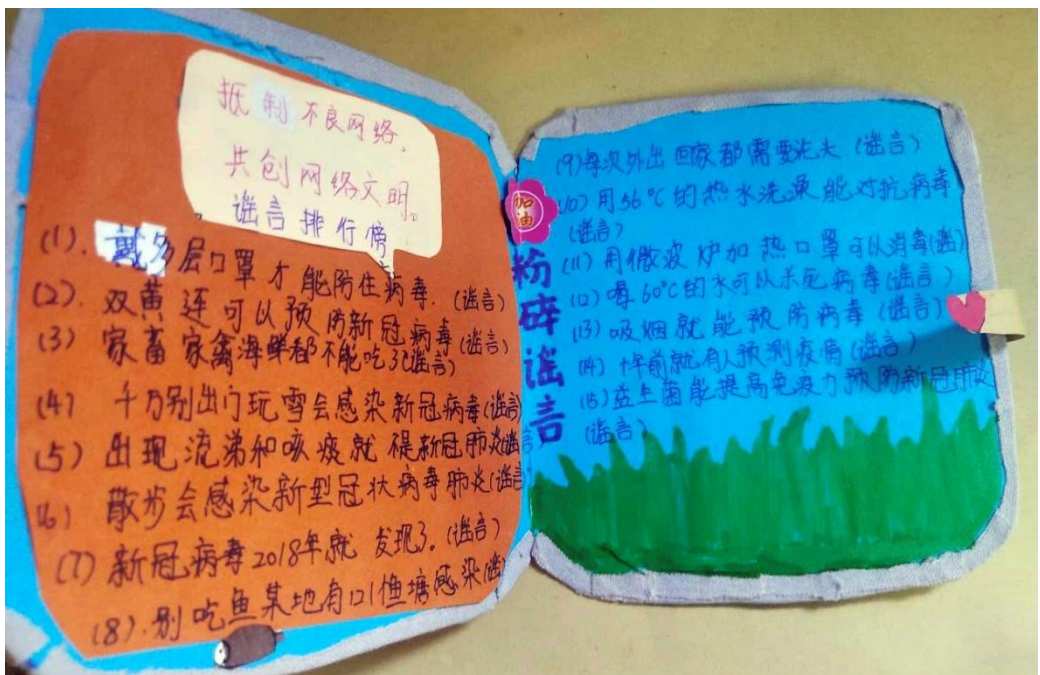 抵制不良网络,
共创网络文明。
谣言排行榜
(1). 戴多层口罩才能防住病毒.(谣言)
(2). 双黄连可以预防新冠病毒(谣言)
(3) 家畜家禽海鲜都不能吃了(谣言)
(4) 千万别出门玩雪会感染新冠病毒(谣言)
(5) 出现流涕和咳痰就不是新冠肺炎(谣言)
(6) 散步会感染新型冠状病毒肺炎(谣言
(7) 新冠病毒2018年就发现了.(谣言)
(8).别吃鱼某地有121鱼塘感染(谣
加油
粉碎谣言
(9)每次外出回家都需要洗头(谣言)
(10)用56°C的热水洗澡能对抗病毒
(谣言)
(11)用微波炉加热口罩可以消毒(谣)
(12)喝60°C的水可以杀死病毒(谣言)
(13)吸烟就能预防病毒(谣言)
(14)十年前就有人预测疫情(谣言)
(15)益生菌能提高免疫力预防新冠肺炎
(谣言)